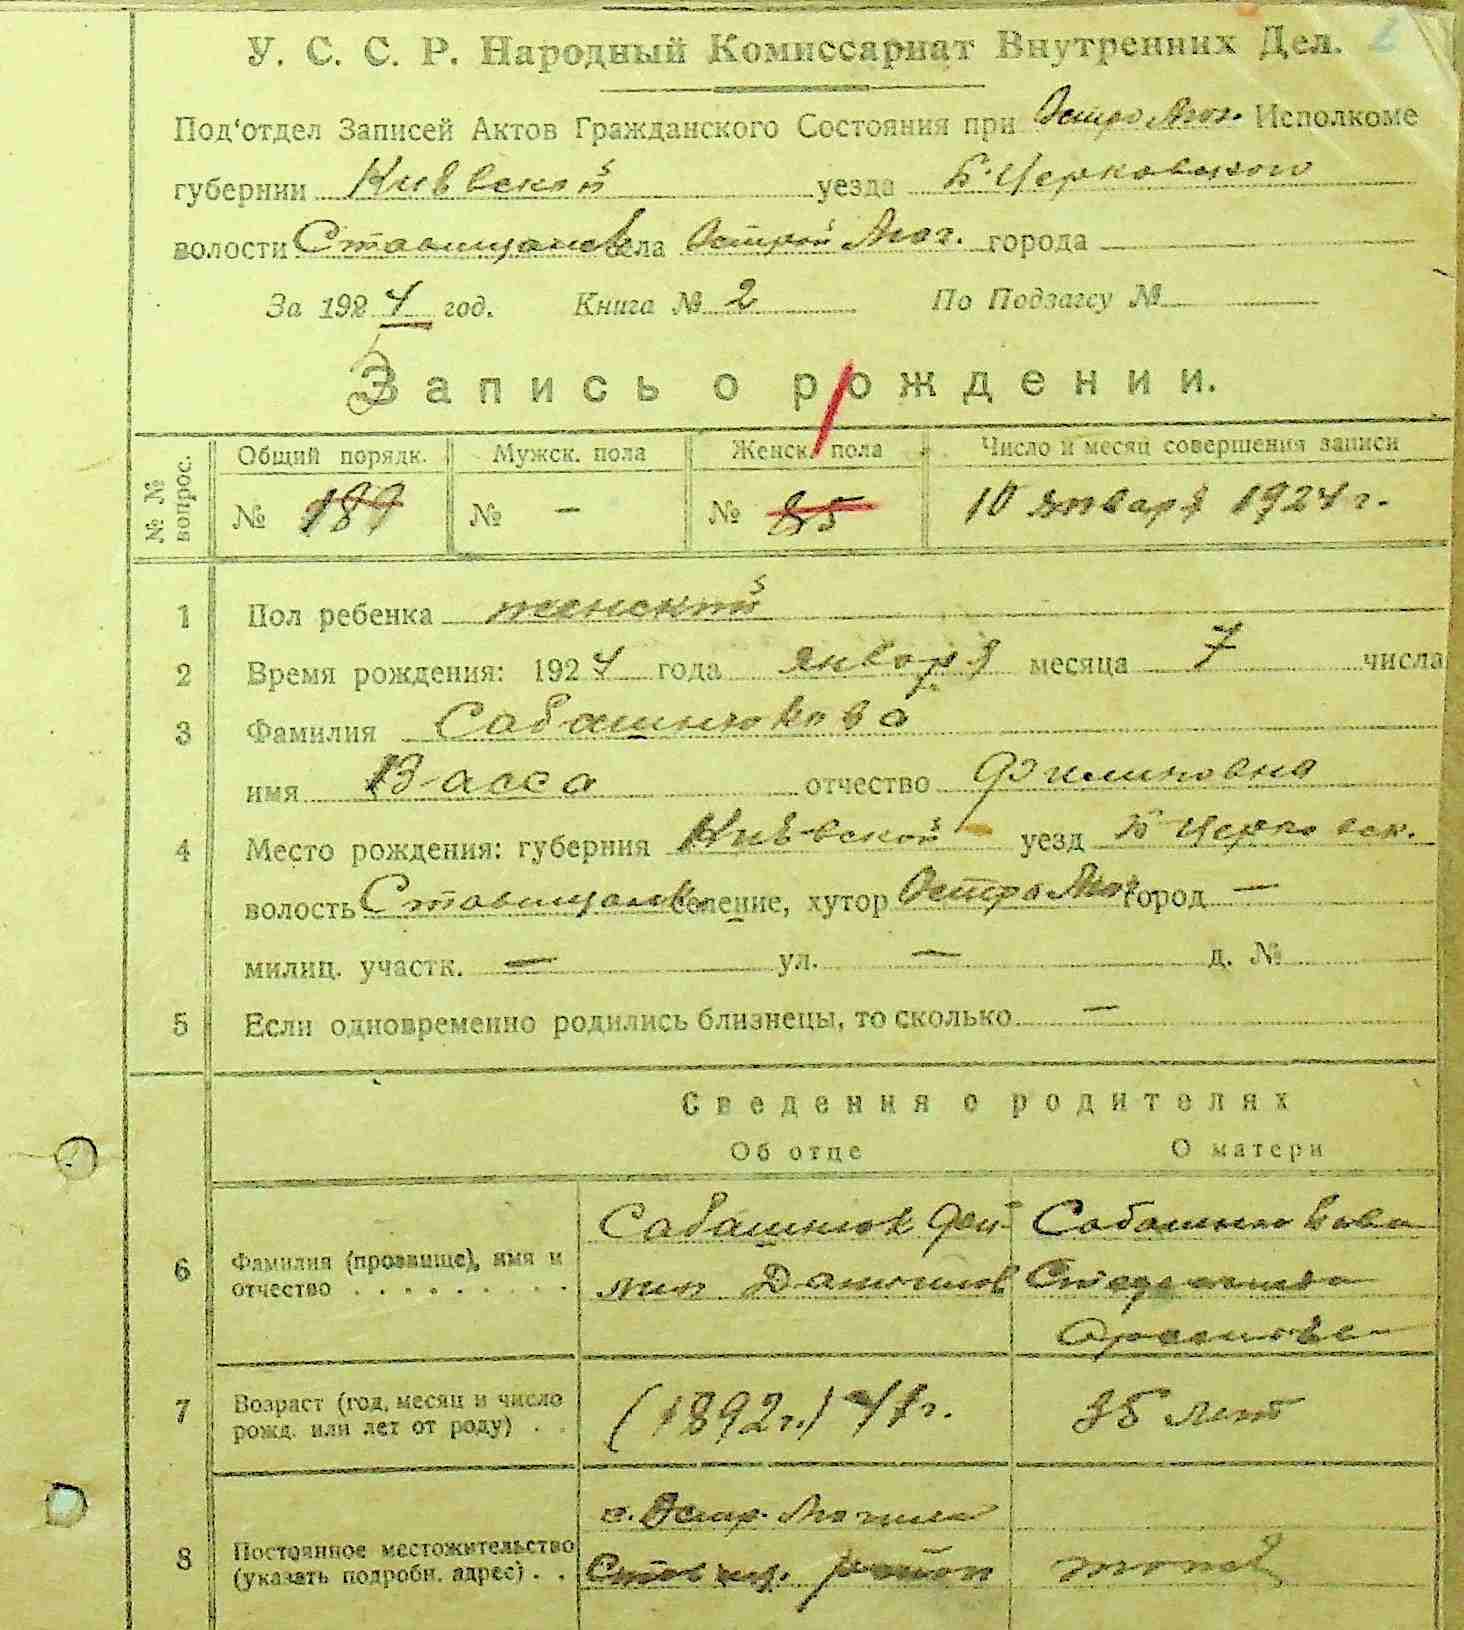 У. С. С. Р. Народный Комиссариат Внутренних Дел. 2
Под'отдел Записей Актов Гражданского Состояния при Остро Мог. Исполкоме
губернии Киевской уезда Б-Церковского
волости Ставищанск села Острой Мог. города
За 1924 год. Книга № 2 По Подзагсу №
Запись о рождении.
№№ вопрос. Общий порядк. Мужск. пола Женск. пола Число и месяц совершения записи
№ 189 № — № 85 10 января 1924 г.
1 Пол ребенка женский
2 Время рождения: 1924 года января месяца 7 числа
3 Фамилия Сабашнюкова
имя Васса отчество Филиповна
4 Место рождения: губерния Киевской уезд Б-Церковск.
волость Ставищанск селение, хутор Остро Мог город —
милиц. участк. — ул. — д. №
5 Если одновременно родились близнецы, то сколько —
Сведения о родителях
Об отце О матери
6 Фамилия (прозвище), имя и отчество Сабашнюк Фи- Сабашнюкова
лип Данилов
7 Возраст (год, месяц и число рожд. или лет от роду) (1892 г.) г. 35 лет
8 Постоянное местожительство (указать подробн. адрес) с. Остр. Могила
Ставищ. район